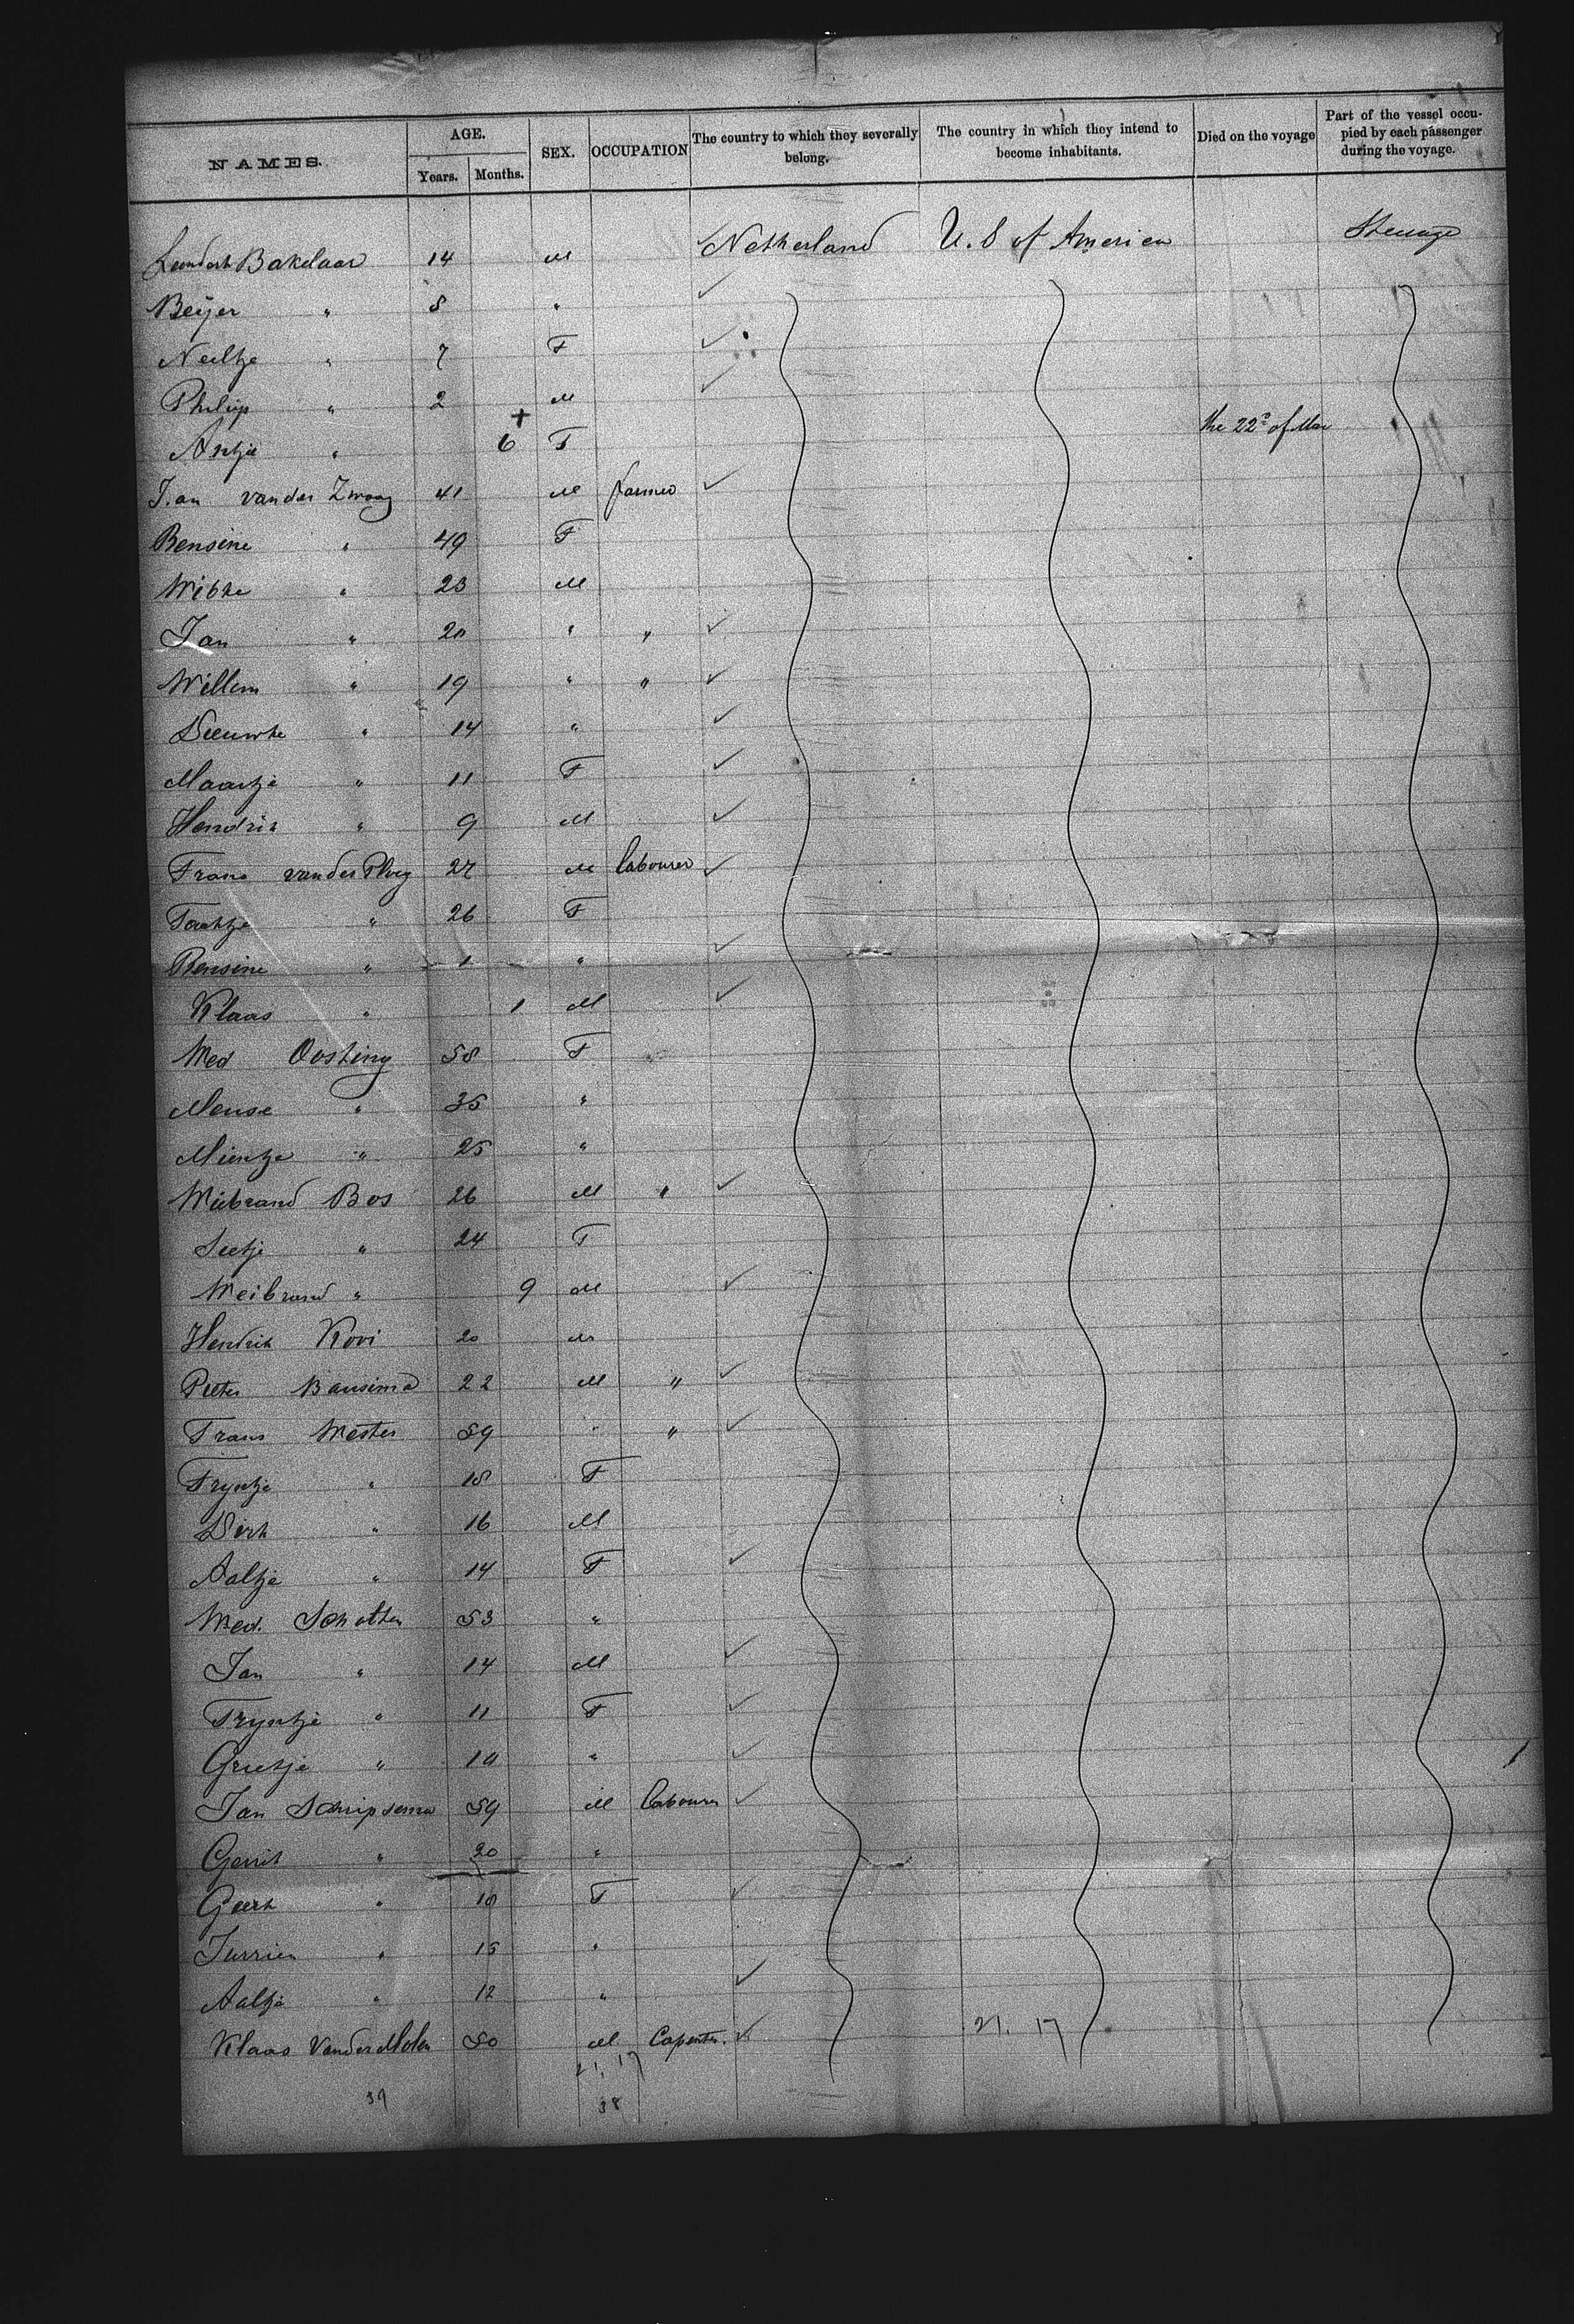 NAMES. AGE. Years. Months. SEX. OCCUPATION The country to which they severally belong. The country in which they intend to become inhabitants. Died on the voyage Part of the vessel occupied by each passenger during the voyage.
Leendert Bakelaar 14 M Netherland U. S of America Steerage
Beijer " 8 "
Neeltje " 7 F
Philip " 2 M
Antje " 6 F the 22d of Mar
Jan van der Zwaag 41 M farmer
Bensine " 49 F
Wibke " 23 M
Jan " 20 " "
Willem " 19 " "
Lieuwke " 14 "
Maartje " 11 F
Hendrik " 9 M
Frans van der Ploeg 27 M labourer
Taaktje " 26 F
Bensine " 1 "
Klaas " 1 M
Wed Oosting 58 F
Mense " 35 "
Mientje " 25 "
Wiebrand Bos 26 M "
Seetje " 24 F
Weibrand " 9 M
Hendrik Kooi 20 M
Pieter Bansima 22 M "
Frans Wester 59 "
Tryntje " 18 F
Dirk " 16 M
Aaltje " 14 F
Wed. Scholten 53 "
Jan " 14 M
Tryntje " 11 F
Grietje " 10 "
Jan Schripsema 59 M labourer
Gerrit " 20 "
Geert " 18 F
Jurrien " 15 "
Aaltje " 12 "
Klaas Van der Molen 50 M. Capenter. 21. 17
21. 17
39 38